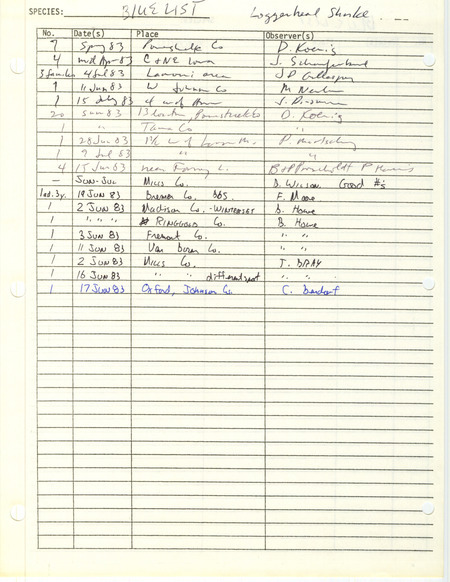 SPECIES: BLUE LIST Loggerhead Shrike
No. Date(s) Place Observer(s)
7 Spring 83 Poweshiek Co D. Koenig
4 mid Apr 83 C & NE Iowa J. Schaufenbuel
3 families 4 Jul 83 Lamoni area JP Gillaspey
1 11 Jun 83 W Johnson Co M Newlon
1 15 July 83 4 w of J. Dinsmore
20 Sum 83 13 location, Poweshiek Co D. Koenig
1 " Tama Co "
1 28 Jun 83 1½ w of P.
1 9 Jul 83 " "
4 15 Jun 83 near L. B+P P
— Jun-Jul Mills Co. B. Wilson Good #s
1ad. 3y. 18 Jun 83 Bremer Co. 365. F. Moore
1 2 Jun 83 Madison Co. - Winterset B. Howe
1 " " " Ringgold Co. B. Howe
1 3 Jun 83 Fremont Co. " "
1 11 Jun 83 Van Buren Co. " "
1 2 Jun 83 Mills Co. T. Bray
1 16 Jun 83 " " different spot " "
1 17 Jun 83 Oxford, Johnson Co. C. Bendorf